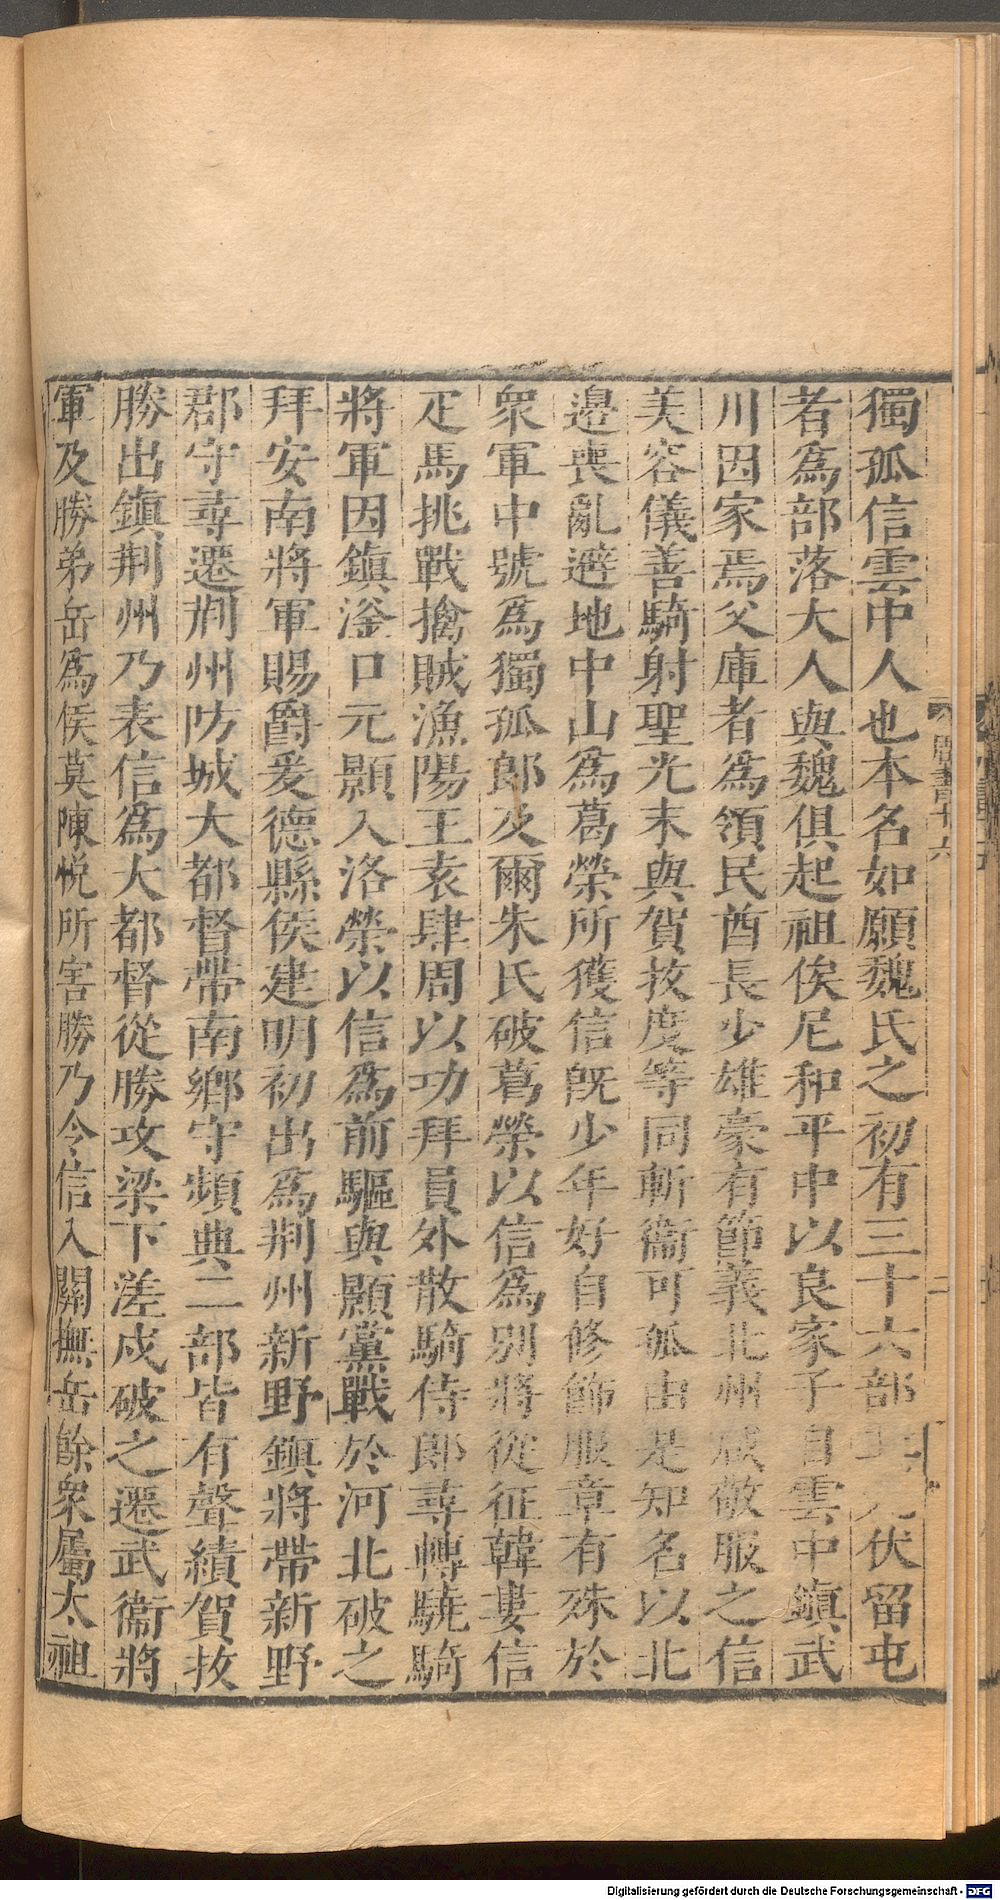 獨孤信雲中人也本名如願魏氏之初有三十六部其先伏留屯
者為部落大人與魏俱起祖俟尼和平中以良家子自雲中鎮武
川因家焉父庫者為領民酋長少雄豪有節義北州咸敬服之信
美容儀善騎射聖光末與賀拔度等同斬衞可孤由是知名以北
邊喪亂避地中山為葛榮所獲信既少年好自修飾服章有殊於
衆軍中號為獨孤郎及爾朱氏破葛榮以信為別將從征韓婁信
疋馬挑戰擒賊漁陽王袁肆周以功拜員外散騎侍郎尋轉驍騎
將軍因鎮滏口元顥入洛榮以信為前驅與顥黨戰於河北破之
拜安南將軍賜爵爰德縣侯建明初出為荆州新野鎮將帶新野
郡守尋遷荆州防城大都督帶南鄉守頻典二部皆有聲績賀拔
勝出鎮荆州乃表信為大都督從勝攻梁下溠戍破之遷武衞將
軍及勝弟岳為侯莫陳悅所害勝乃令信入關撫岳餘衆屬太祖
周書十六
二
Digitalisierung gefördert durch die Deutsche Forschungsgemeinschaft - DFG